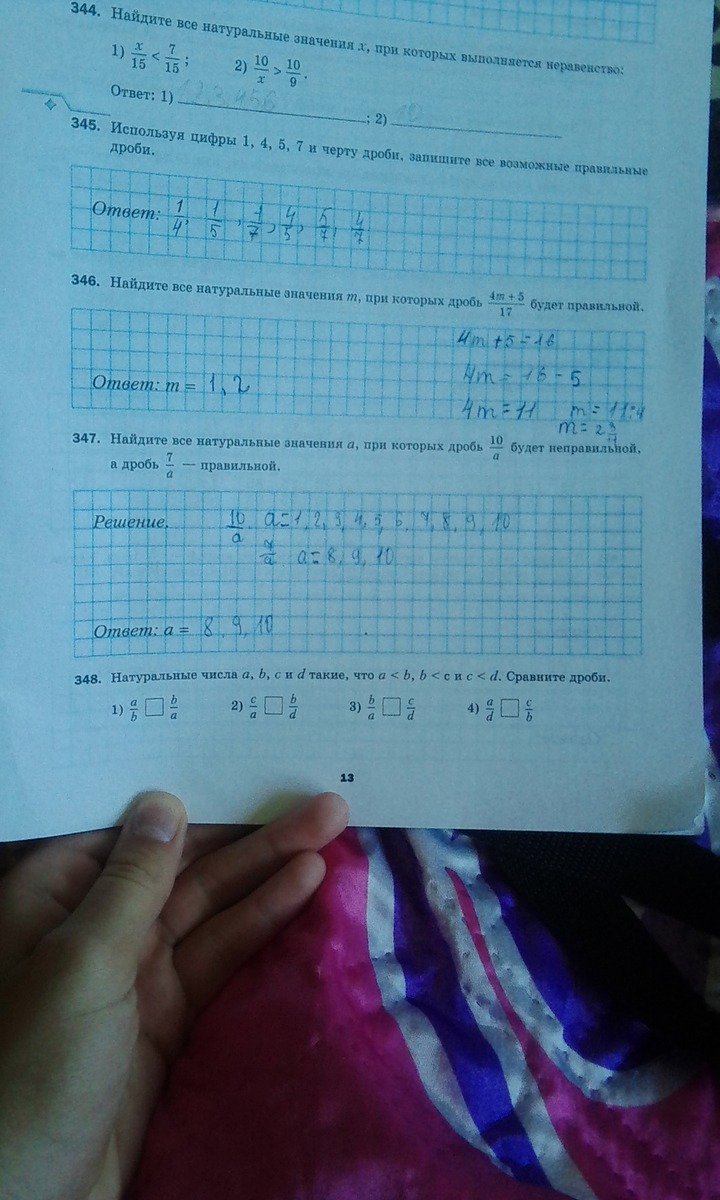 344. Найдите все натуральные значения x, при которых выполняется неравенство:
1) x/15 < 7/15; 2) 10/x > 10/9.
Ответ: 1) 1 2, 3, 4 5 6 ; 2) 10
345. Используя цифры 1, 4, 5, 7 и черту дроби, запишите все возможные правильные
дроби.
Ответ: 1/4, 1/5, 1/7, 4/5, 5/7, 4/7
346. Найдите все натуральные значения m, при которых дробь (4m + 5)/17 будет правильной.
4m + 5 = 16
4m = 16 - 5
Ответ: m = 1, 2
4m = 11 m = 11:4
m = 2
347. Найдите все натуральные значения a, при которых дробь 10/a будет неправильной,
а дробь 7/a — правильной.
Решение. 10/a a = 1, 2, 3, 4, 5, 6, 7, 8, 9, 10
7/a a = 8, 9, 10
Ответ: a = 8, 9, 10
348. Натуральные числа a, b, c и d такие, что a < b, b < c и c < d. Сравните дроби.
1) a/b □ b/a 2) c/a □ b/d 3) b/a □ c/d 4) a/d □ c/b
13